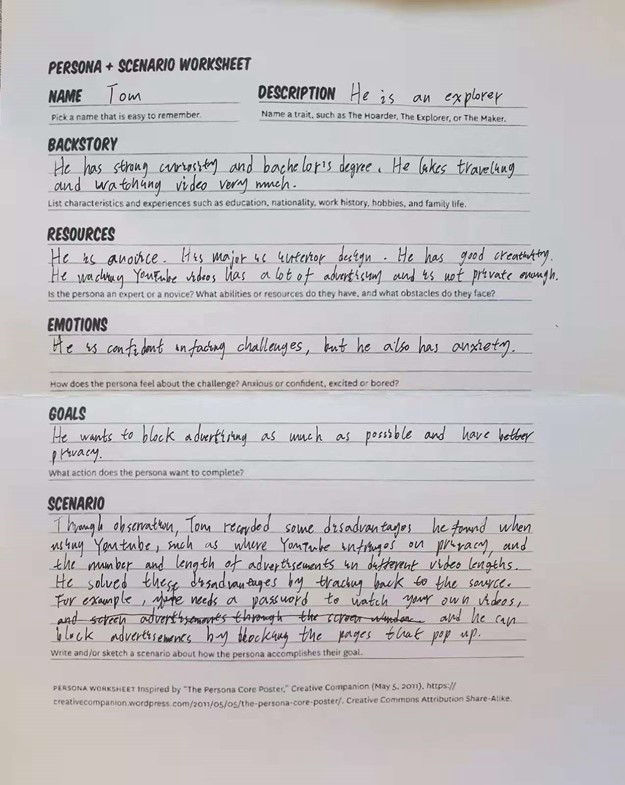 PERSONA + SCENARIO WORKSHEET
NAME Tom DESCRIPTION He is an explorer
Pick a name that is easy to remember. Name a trait, such as The Hoarder, The Explorer, or The Maker.
BACKSTORY
He has strong curiosity and bachelor's degree. He likes traveling
and watching video very much.
List characteristics and experiences such as education, nationality, work history, hobbies, and family life.
RESOURCES
He is a novice. His major is interior design. He has good creativity.
He waching YouTube videos has a lot of advertising and is not private enough.
Is the persona an expert or a novice? What abilities or resources do they have, and what obstacles do they face?
EMOTIONS
He is confident in facing challenges, but he also has anxiety.
How does the persona feel about the challenge? Anxious or confident, excited or bored?
GOALS
He wants to block advertising as much as possible and have better
privacy.
What action does the persona want to complete?
SCENARIO
Through observation, Tom recorded some disadvantages he found when
using Youtube, such as where YouTube infringes on privacy, and
the number and length of advertisements in different video lengths.
He solved these disadvantages by tracing back to the source.
For example, needs a password to watch your own videos,
and screen advertisements through the screen window. and he can
block advertisements by blocking the pages that pop up.
Write and/or sketch a scenario about how the persona accomplishes their goal.
PERSONA WORKSHEET Inspired by "The Persona Core Poster," Creative Companion (May 5, 2011), https://
creativecompanion.wordpress.com/2011/05/05/the-persona-core-poster/. Creative Commons Attribution Share-Alike.